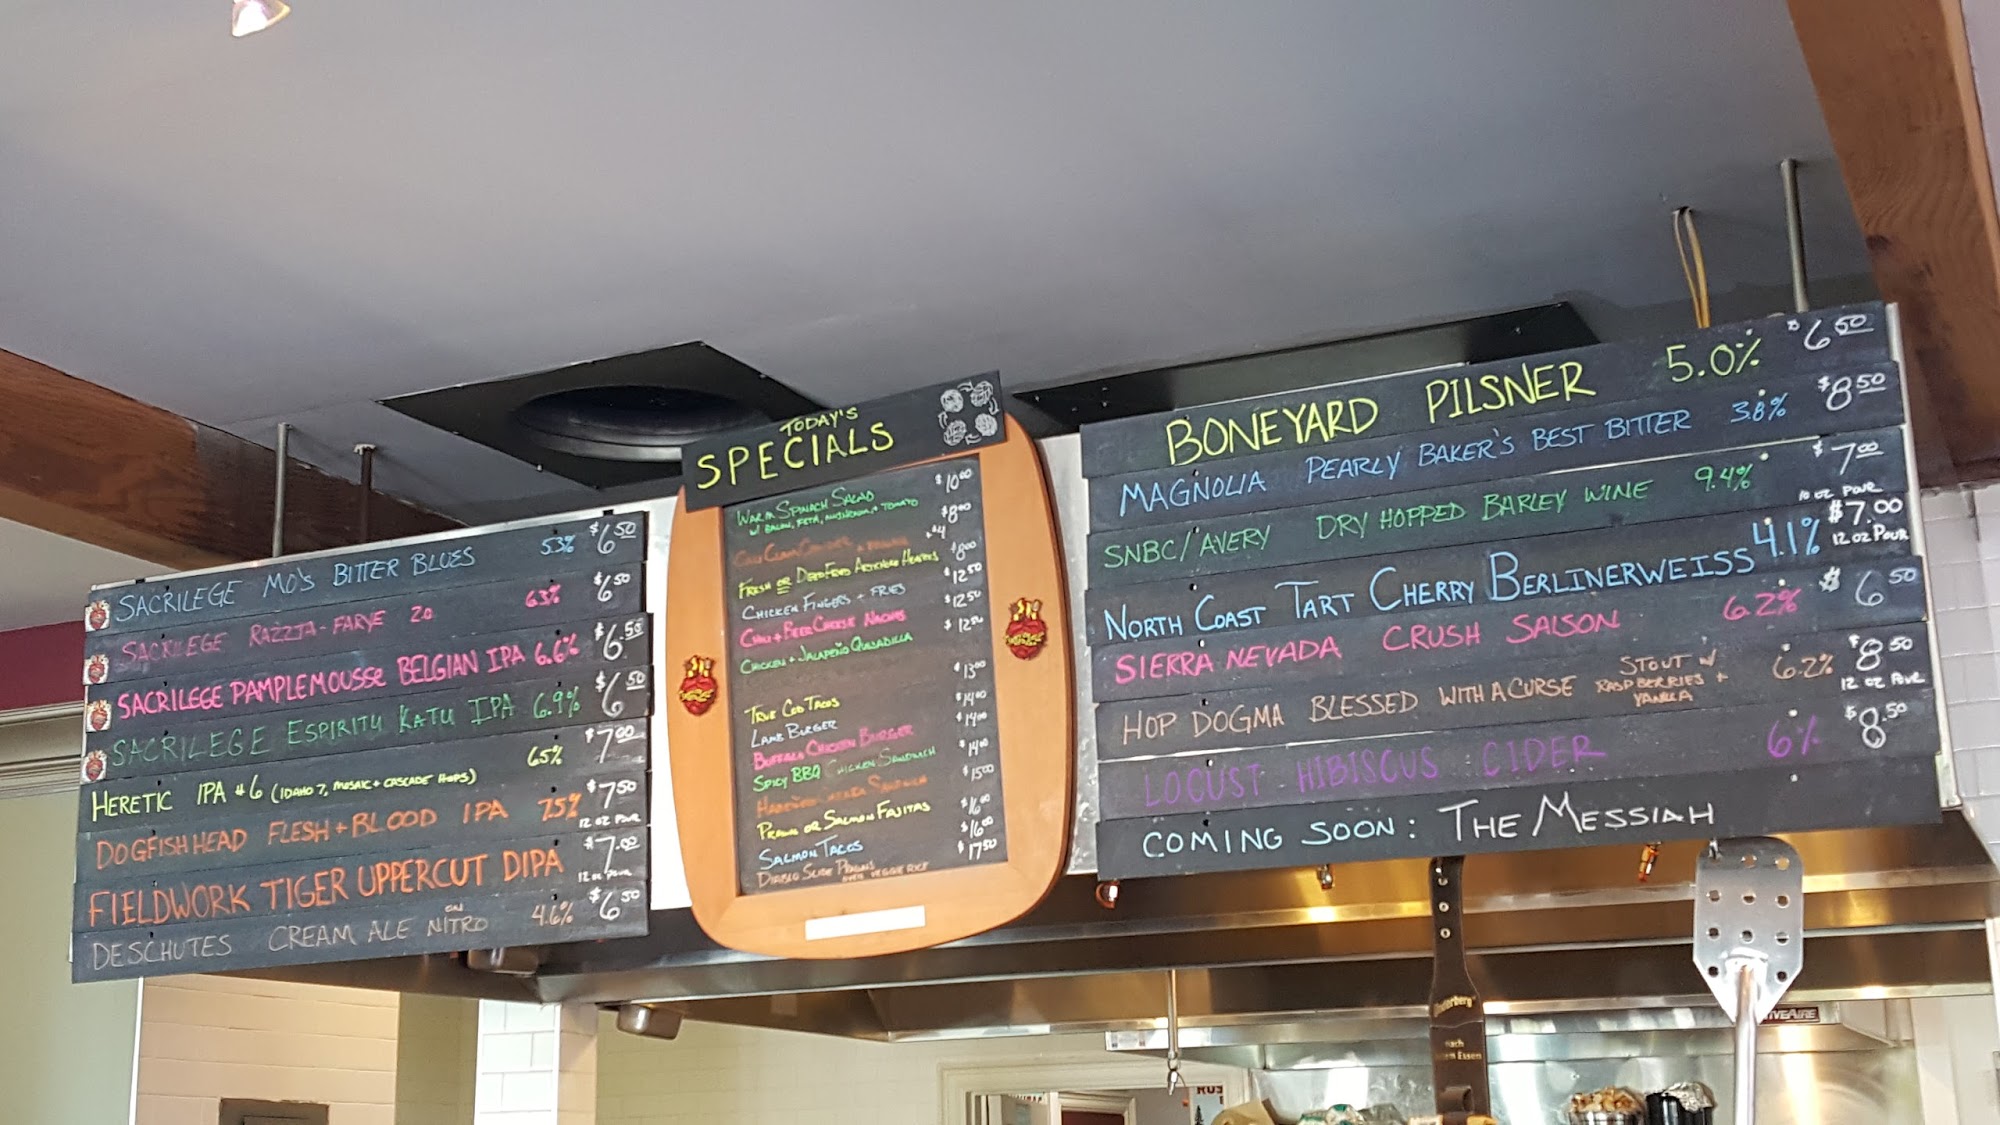 SACRILEGE MO'S BITTER BLUES 5.3% $6.50
SACRILEGE RAZZTA-FARYE 2.0 6.3% $6.50
SACRILEGE PAMPLEMOUSSE BELGIAN IPA 6.6% $6.50
SACRILEGE ESPIRITU KATU IPA 6.9% $6.50
HERETIC IPA #6 (IDAHO 7, MOSAIC + CASCADE HOPS) 6.5% $7.00
DOGFISHHEAD FLESH + BLOOD IPA 7.5% $7.50
12 OZ POUR
FIELDWORK TIGER UPPERCUT DIPA $7.00
12 OZ POUR
DESCHUTES CREAM ALE ON NITRO 4.6% $6.50
TODAY'S
SPECIALS
WARM SPINACH SALAD $10.00
W/ BACON, FETA, MUSHROOM, + TOMATO
$8.00
+$4
FRESH OR DEEP FRIED ARTICHOKE HEARTS $8.00
CHICKEN FINGERS + FRIES $12.50
CHILI + BEER CHEESE NACHOS $12.50
CHICKEN + JALAPEÑO QUESADILLA $12.50
$13.00
TRUE COD TACOS $14.00
LAMB BURGER $14.00
BUFFALO CHICKEN BURGER
SPICY BBQ CHICKEN SANDWICH $14.00
HABAÑERO CHICKEN SANDWICH $15.00
PRAWN OR SALMON FAJITAS $16.00
SALMON TACOS $16.00
DIABLO STYLE PRAWNS $17.50
OVER VEGGIE RICE
BONEYARD PILSNER 5.0% $6.50
MAGNOLIA PEARLY BAKER'S BEST BITTER 3.8% $8.50
SNBC/AVERY DRY HOPPED BARLEY WINE 9.4% $7.00
10 OZ POUR
NORTH COAST TART CHERRY BERLINERWEISS 4.1% $7.00
12 OZ POUR
SIERRA NEVADA CRUSH SAISON 6.2% $6.50
HOP DOGMA BLESSED WITH A CURSE STOUT W/ RASPBERRIES + VANILLA 6.2% $8.50
12 OZ POUR
LOCUST HIBISCUS CIDER 6% $8.50
COMING SOON: THE MESSIAH